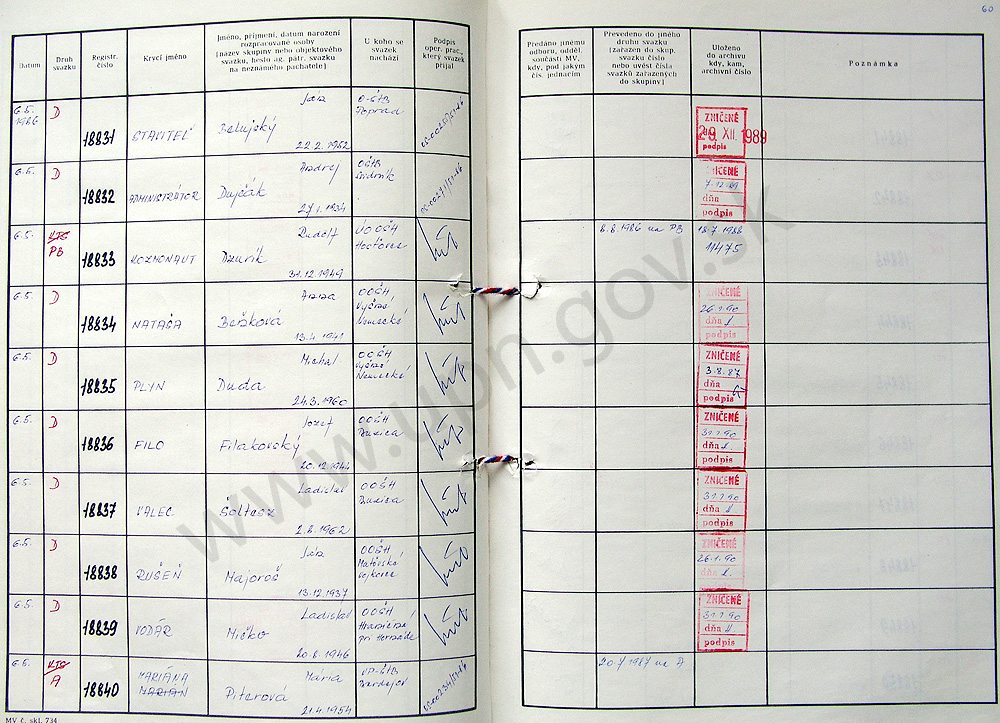 60
Datum
Druh
svazku
Registr.
číslo
Krycí jméno
Jméno, příjmení, datum narození
rozpracované osoby
(název skupiny nebo objektového
svazku, heslo ag. pátr. svazku
na neznámého pachatele)
U koho se
svazek
nachází
Podpis
oper. prac.,
který svazek
přijal
Předáno jinému
odboru, odděl.
součásti MV,
kdy, pod jakým
čís. jednacím
Převedeno do jiného
druhu svazku
(zařazen do skup.
svazku číslo
nebo uvést čísla
svazků zařazených
do skupiny)
Uloženo
do archivu
kdy, kam,
archivní číslo
Poznámka
6.5.
1986
D
18831
STAVITEĽ
Ján
Belujský
22.2.1962
O-ŠtB
Poprad
ZNIČENÉ
29. XII. 1989
podpis
6.5.
D
18832
ADMINISTRÁTOR
Andrej
Dujčák
27.1.1934
OŠtB
Svidník
ZNIČENÉ
7.12.89
dňa
podpis
6.5.
KTS
PB
18833
KOZMONAUT
Rudolf
Dzurik
31.12.1949
8.8.1986 na PB
18.7.1988
11475
6.5.
D
18834
NATAŠA
Anna
Bešková
13.4.1941
OOŠH
Vyšné
Nemecké
ZNIČENÉ
26.1.90
dňa
podpis
6.5.
D
18835
PLYN
Michal
Duda
24.3.1960
OOŠH
Vyšné
Nemecké
ZNIČENÉ
3.8.87
dňa
podpis
6.5.
D
18836
FILO
Jozef
Filakovský
20.12.1944
OOŠH
ZNIČENÉ
31.1.90
dňa
podpis
6.5.
D
18837
VALEC
Ladislav
Šoltesz
2.8.1962
OOŠH
ZNIČENÉ
31.1.90
dňa
podpis
6.5.
D
18838
RUŠEŇ
Ján
Majoroš
13.12.1937
OOŠH
Maťovské
Vojkovce
ZNIČENÉ
26.1.90
dňa
podpis
6.5.
D
18839
VODÁR
Ladislav
Mičko
20.8.1946
OOŠH
Hraničná
pri Hornáde
ZNIČENÉ
31.1.90
dňa
podpis
6.5.
KTS
A
18840
MARIÁNA
MARIAN
Mária
Piterová
21.4.1954
Bardejov
20.7.1987 na A
MV č. skl. 734
www.upn.gov.sk